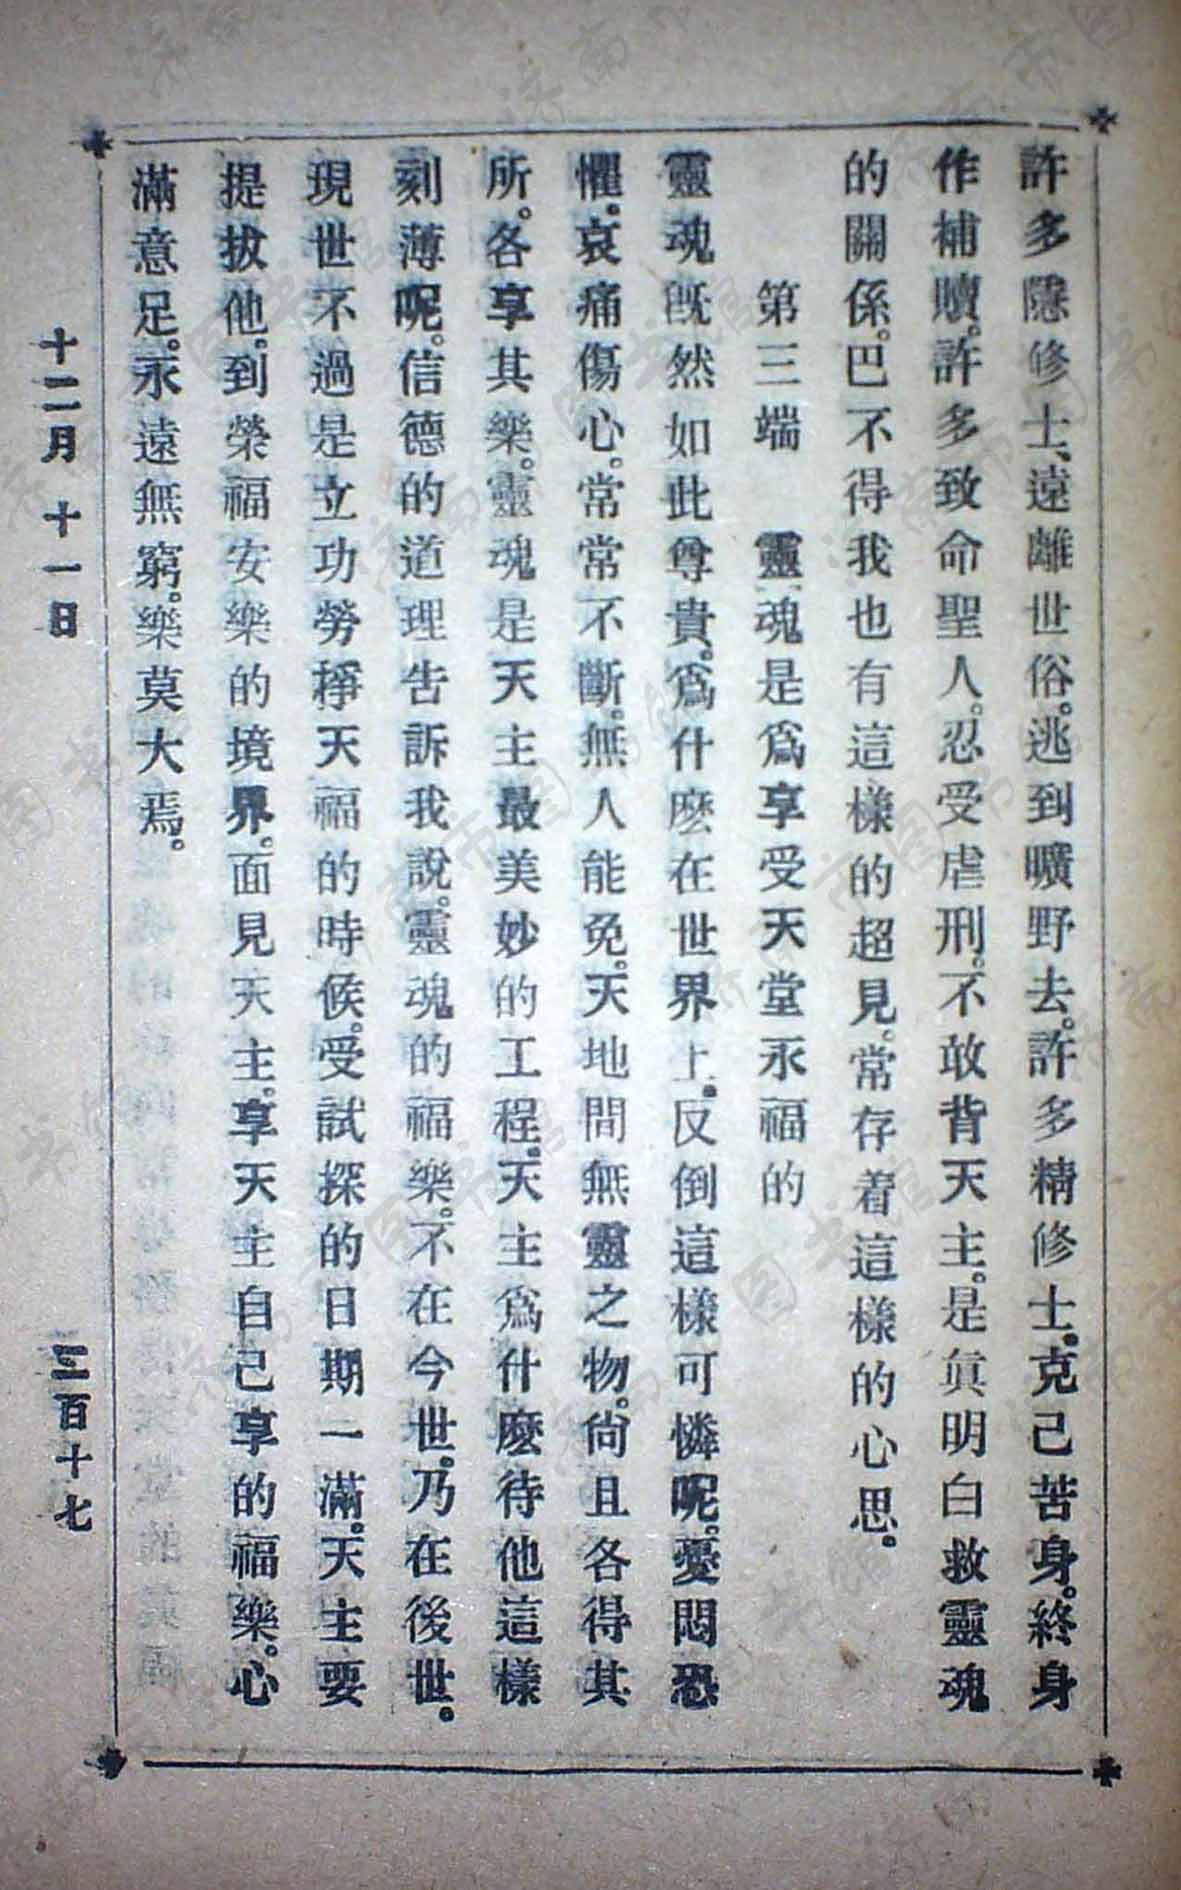 許多隱修士、遠離世俗。逃到曠野去。許多精修士。克己苦身。終身
作補贖。許多致命聖人。忍受虐刑。不敢背天主。是眞明白救靈魂
的關係。巴不得我也有這樣的超見。常存着這樣的心思。
第三端　靈魂是爲享受天堂永福的
靈魂旣然如此尊貴。爲什麽在世界上。反倒這樣可憐呢。憂悶恐
懼。哀痛傷心。常常不斷。無人能免。天地間無靈之物。尙且各得其
所。各享其樂。靈魂是天主最美妙的工程。天主爲什麽待他這樣
刻薄呢。信德的道理告訴我說。靈魂的福樂。不在今世。乃在後世。
現世不過是立功勞掙天福的時候。受試探的日期一滿。天主要
提拔他。到榮福安樂的境界。面見天主。享天主自己享的福樂。心
滿意足。永遠無窮。樂莫大焉。
十二月　十一日　三百十七
济南市图书馆